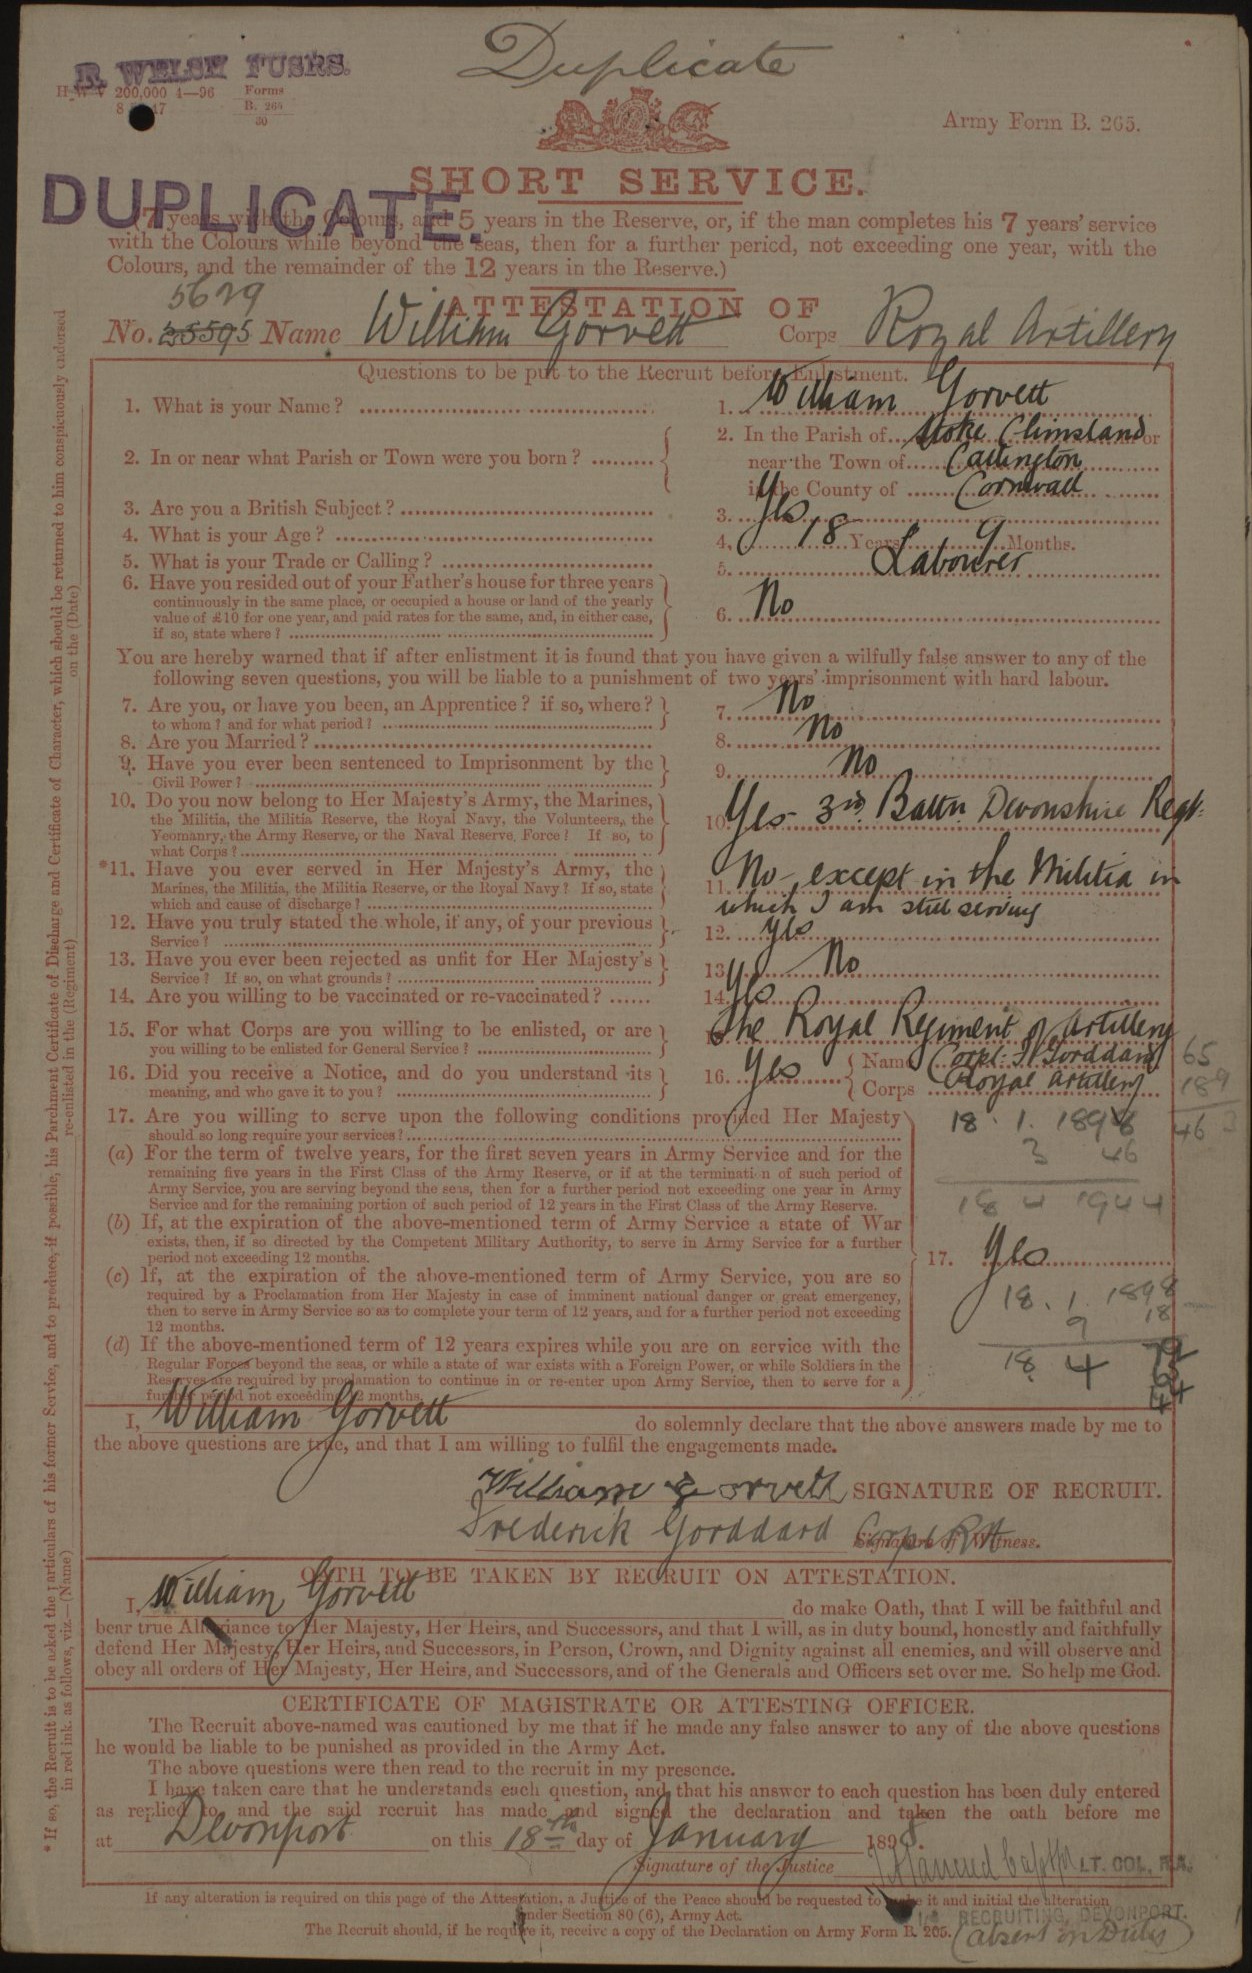 R. WELSH FUSRS.
Duplicate
H W V 200,000 4—96 Forms
B. 264
30
Army Form B. 265.
SHORT SERVICE.
DUPLICATE.
(7 years with the Colours, and 5 years in the Reserve, or, if the man completes his 7 years' service
with the Colours while beyond the seas, then for a further period, not exceeding one year, with the
Colours, and the remainder of the 12 years in the Reserve.)
5629
ATTESTATION OF
No. 25595 Name William Gorvett Corps Royal Artillery
Questions to be put to the Recruit before Enlistment.
1. What is your Name? 1. William Gorvett
2. In or near what Parish or Town were you born? 2. In the Parish of Stoke Climsland or
near the Town of Callington
in the County of Cornwall
3. Are you a British Subject? 3. Yes
4. What is your Age? 4. 18 Years 9 Months.
5. What is your Trade or Calling? 5. Labourer
6. Have you resided out of your Father's house for three years
continuously in the same place, or occupied a house or land of the yearly
value of £10 for one year, and paid rates for the same, and, in either case,
if so, state where? 6. No
You are hereby warned that if after enlistment it is found that you have given a wilfully false answer to any of the
following seven questions, you will be liable to a punishment of two years' imprisonment with hard labour.
7. Are you, or have you been, an Apprentice? if so, where?
to whom? and for what period? 7. No
8. Are you Married? 8. No
9. Have you ever been sentenced to Imprisonment by the
Civil Power? 9. No
10. Do you now belong to Her Majesty's Army, the Marines,
the Militia, the Militia Reserve, the Royal Navy, the Volunteers, the
Yeomanry, the Army Reserve, or the Naval Reserve Force? If so, to
what Corps? 10. Yes 3rd Battn Devonshire Regt.
*11. Have you ever served in Her Majesty's Army, the
Marines, the Militia, the Militia Reserve, or the Royal Navy? If so, state
which and cause of discharge? 11. No, except in the Militia in
which I am still serving
12. Have you truly stated the whole, if any, of your previous
Service? 12. Yes
13. Have you ever been rejected as unfit for Her Majesty's
Service? If so, on what grounds? 13. No
14. Are you willing to be vaccinated or re-vaccinated? 14. Yes
15. For what Corps are you willing to be enlisted, or are
you willing to be enlisted for General Service? 15. The Royal Regiment of Artillery
16. Did you receive a Notice, and do you understand its
meaning, and who gave it to you? 16. Yes Name Corpl. F Gorddard
Corps Royal Artillery
65
189
46 3
17. Are you willing to serve upon the following conditions provided Her Majesty
should so long require your services?
18 . 1 . 1898
3 46
18 4 1944
(a) For the term of twelve years, for the first seven years in Army Service and for the
remaining five years in the First Class of the Army Reserve, or if at the termination of such period of
Army Service, you are serving beyond the seas, then for a further period not exceeding one year in Army
Service and for the remaining portion of such period of 12 years in the First Class of the Army Reserve.
(b) If, at the expiration of the above-mentioned term of Army Service a state of War
exists, then, if so directed by the Competent Military Authority, to serve in Army Service for a further
period not exceeding 12 months.
17. Yes
(c) If, at the expiration of the above-mentioned term of Army Service, you are so
required by a Proclamation from Her Majesty in case of imminent national danger or great emergency,
then to serve in Army Service so as to complete your term of 12 years, and for a further period not exceeding
12 months.
18 . 1 . 1898
9 18
18 4 79
(d) If the above-mentioned term of 12 years expires while you are on service with the
Regular Forces beyond the seas, or while a state of war exists with a Foreign Power, or while Soldiers in the
Reserves are required by proclamation to continue in or re-enter upon Army Service, then to serve for a
further period not exceeding 12 months.
I, William Gorvett do solemnly declare that the above answers made by me to
the above questions are true, and that I am willing to fulfil the engagements made.
William Gorvett SIGNATURE OF RECRUIT.
Frederick Gorddard Corpl RA Signature of Witness.
OATH TO BE TAKEN BY RECRUIT ON ATTESTATION.
I, William Gorvett do make Oath, that I will be faithful and
bear true Allegiance to Her Majesty, Her Heirs, and Successors, and that I will, as in duty bound, honestly and faithfully
defend Her Majesty, Her Heirs, and Successors, in Person, Crown, and Dignity against all enemies, and will observe and
obey all orders of Her Majesty, Her Heirs, and Successors, and of the Generals and Officers set over me. So help me God.
CERTIFICATE OF MAGISTRATE OR ATTESTING OFFICER.
The Recruit above-named was cautioned by me that if he made any false answer to any of the above questions
he would be liable to be punished as provided in the Army Act.
The above questions were then read to the recruit in my presence.
I have taken care that he understands each question, and that his answer to each question has been duly entered
as replied to, and the said recruit has made and signed the declaration and taken the oath before me
at Devonport on this 18th day of January 1898.
Signature of the Justice LT. COL, R.A.
If any alteration is required on this page of the Attestation, a Justice of the Peace should be requested to make it and initial the alteration
under Section 80 (6), Army Act.
RECRUITING, DEVONPORT.
The Recruit should, if he require it, receive a copy of the Declaration on Army Form B. 265.
(absent on Duty)
* If so, the Recruit is to be asked the particulars of his former Service, and to produce, if possible, his Parchment Certificate of Discharge and Certificate of Character, which should be returned to him conspicuously endorsed
in red ink. as follows, viz.—(Name) re-enlisted in the (Regiment) on the (Date)